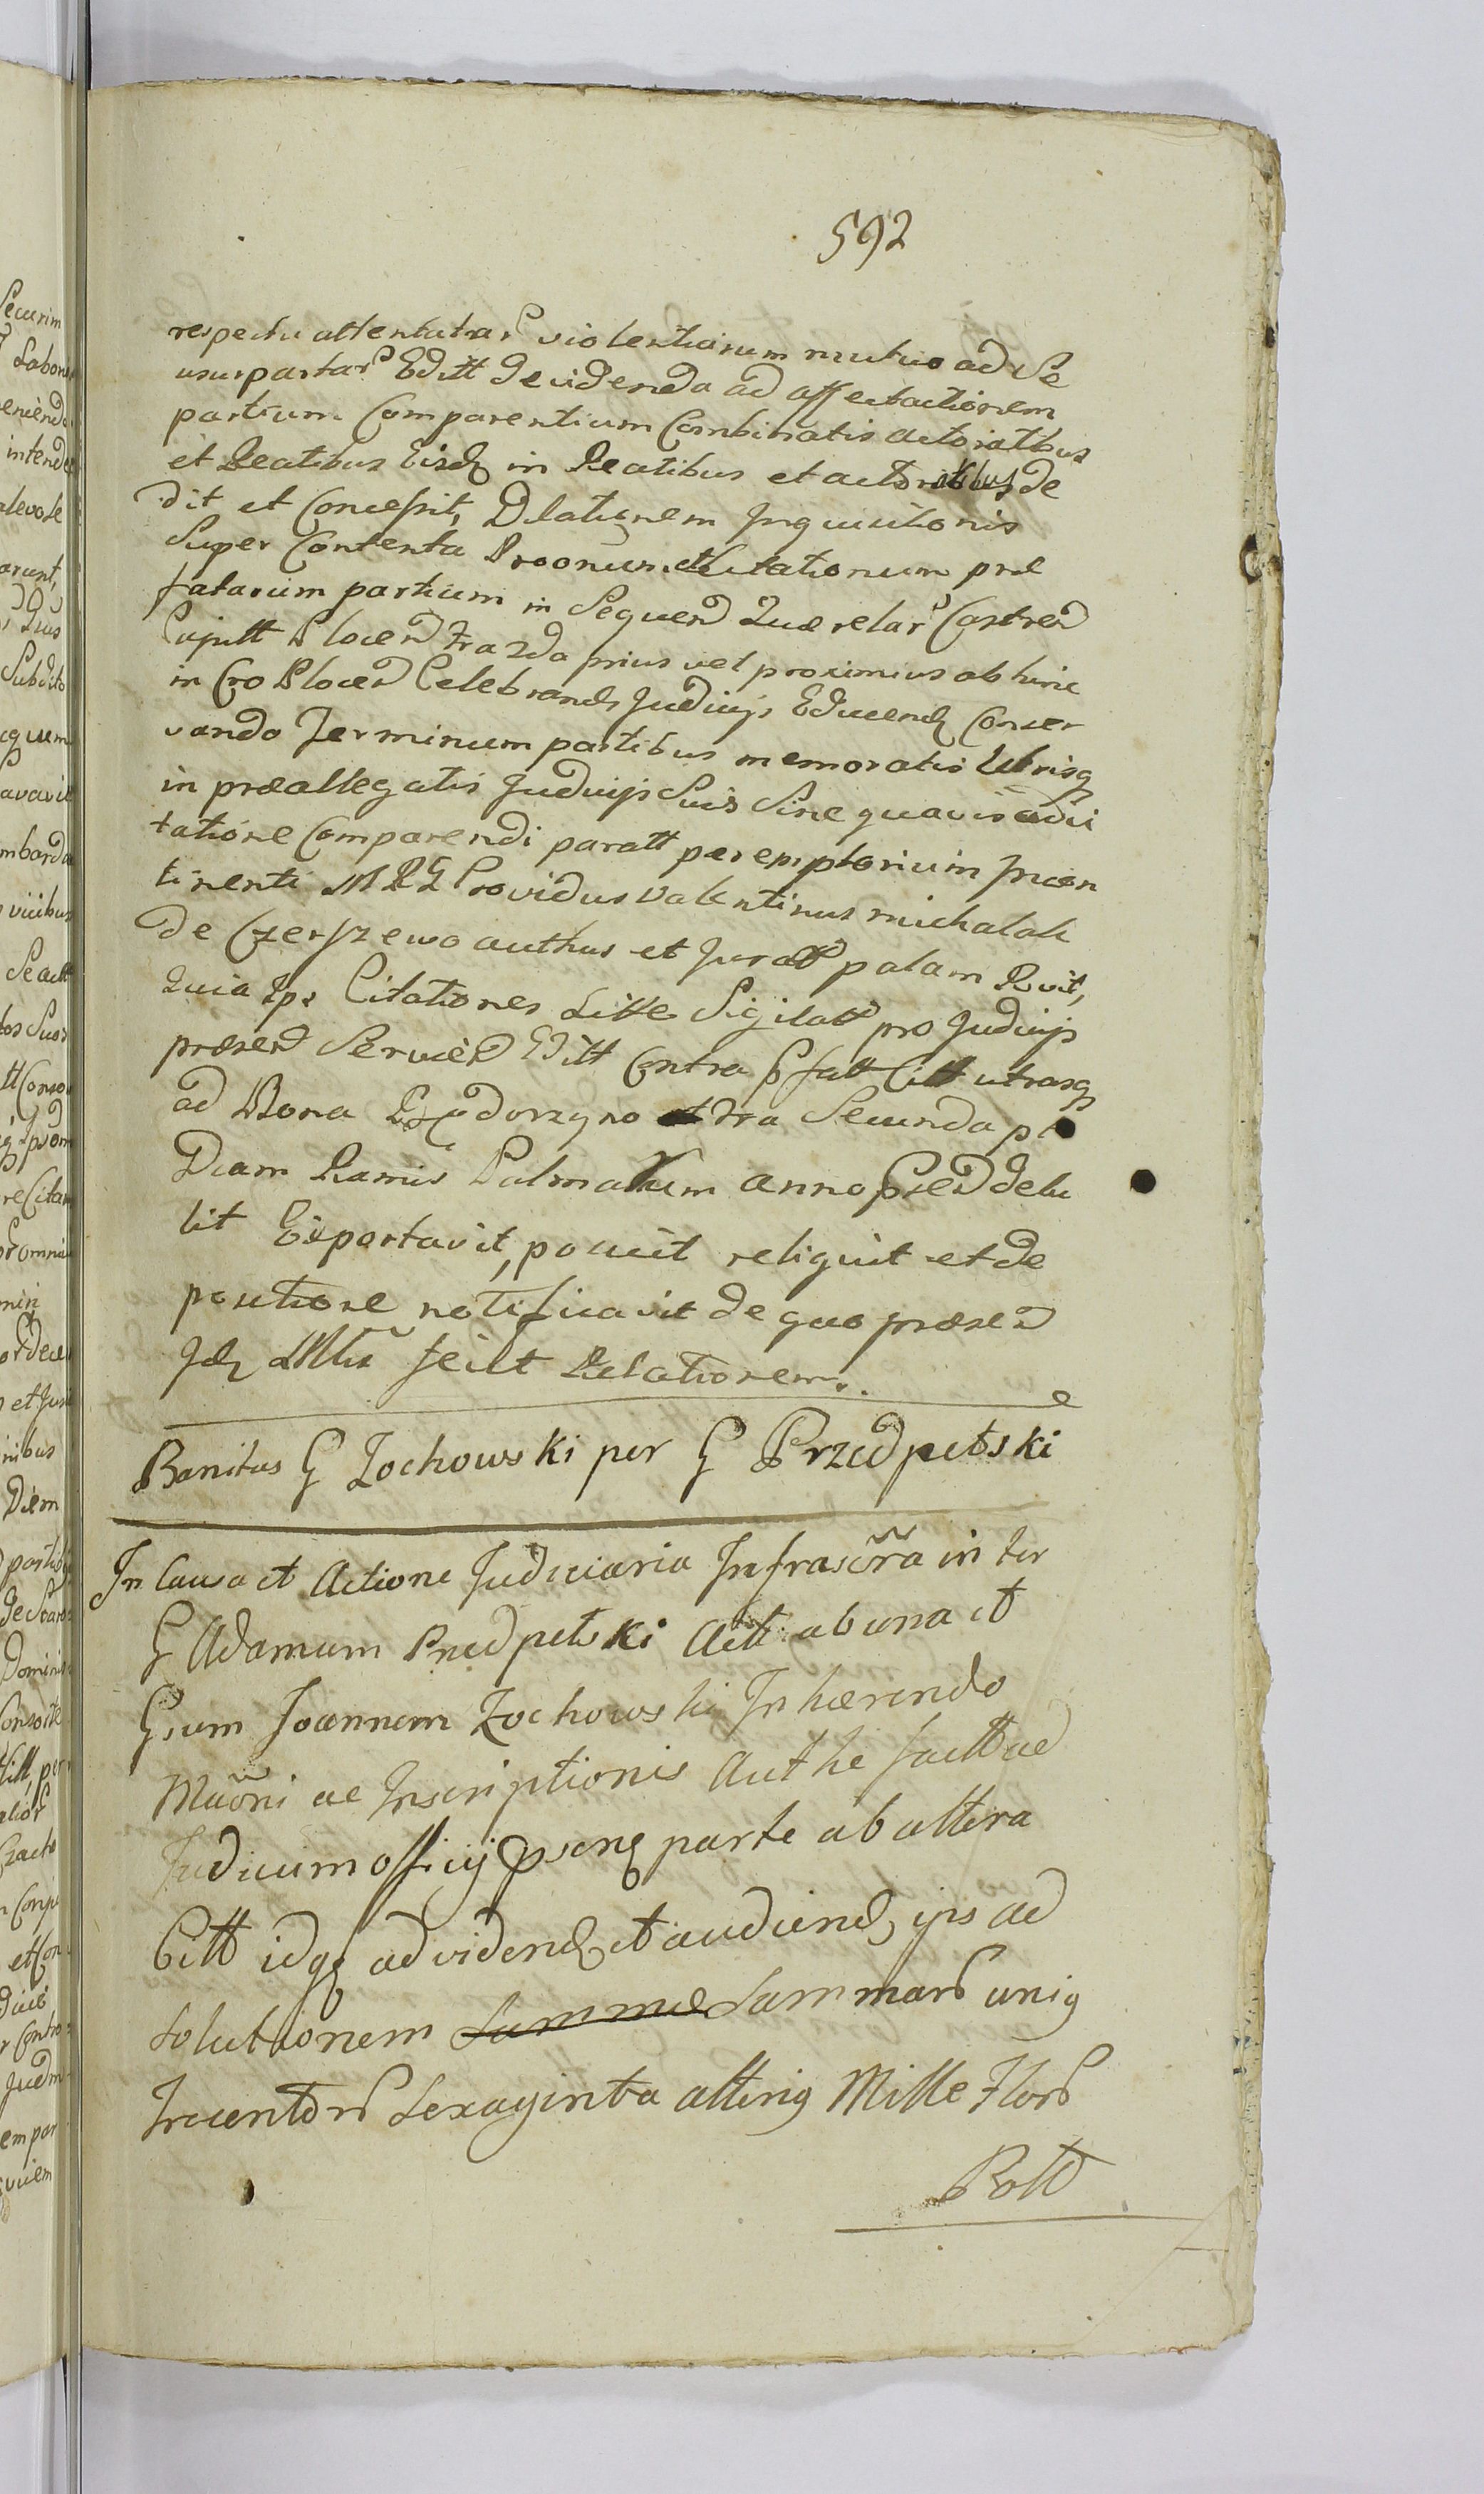 592
respectu attentatar violentiarum mutuo ad se
usurpartar Editt decidenda ad affectactionem
partium Comparentium Combinatis actoratibus
et Reatibus Eisd in Reatibus et actoratibus de
dit et Concessit, Dilationem Inquisitionis
Super Contenta et Citationum præ
fatarum partium in Sequen Querelar Castren
Capitt Plocen fra 2da prius vel proximius ab hinc
in Cro Plocen Celebrand Judicijs Educend Conser
vando Terminum partibus memoratis Utrisq
in præallegatis Judicijs Suis Sine quavis adci
tatione Comparendi paratt peremptorium Incon
tinenti Providus Valentinus michalak
de Czerszewo authus et Juratt palam Rvit,
Quia Ips Citationes Litte Sigilatt pro Judicijs
præsen Servien Editt Contra Citt utrasq
ad Bona fra Secunda
Diam Ramis Palmarum anno delu
lit Exportavit, posuit reliquit et de
positione notificavit de quo præsen
fecit Relationem.
Banitus G Zochowski per G Przedpelski
In Causa et Actione Judiciaria Infrascra in ter
G Adamum Przedpelski Actt ab una et
Gsum Joannem Zochowski Inhærendo
ac Inscriptionis Authe factt ad
Judicium officij parte ab altera
Citt idq ad vidend et audiend, ips ad
solutionem Summæ Summars unig
Trecentors Sexaginta alterig Mille Flors
Poltt